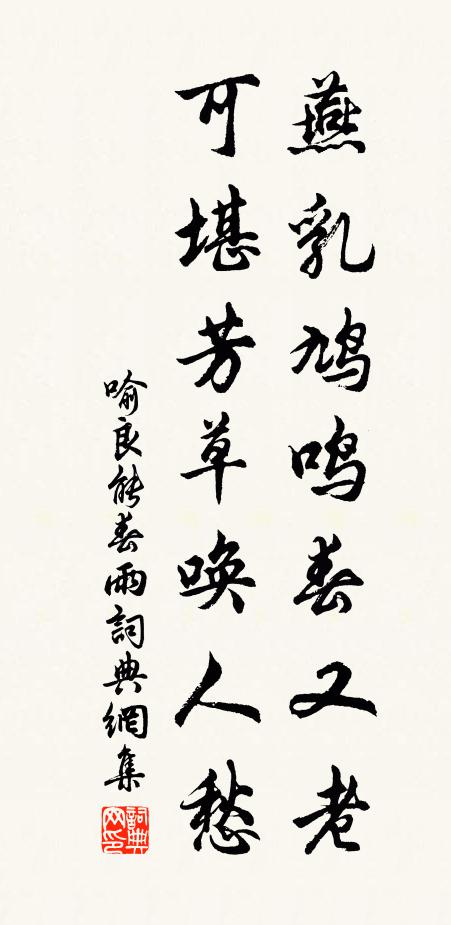 燕乳鸠鸣春又老
可堪芳草唤人愁
喻良能春雨詞典網集
詞典网印